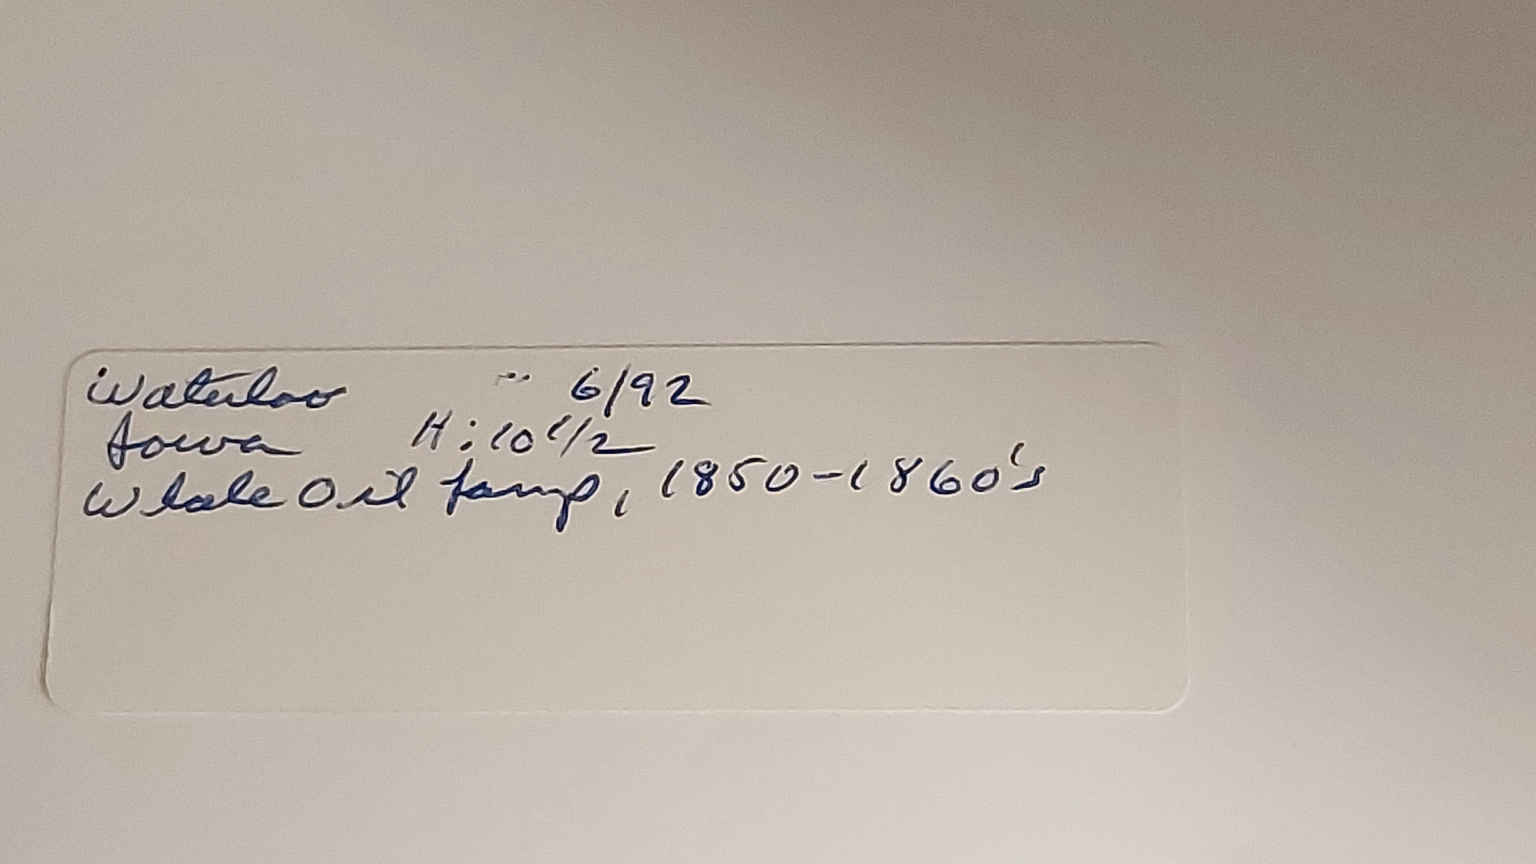 Waterloo " 6/92
Iowa H: 10 1/2
Whale Oil Lamp, 1850-1860's